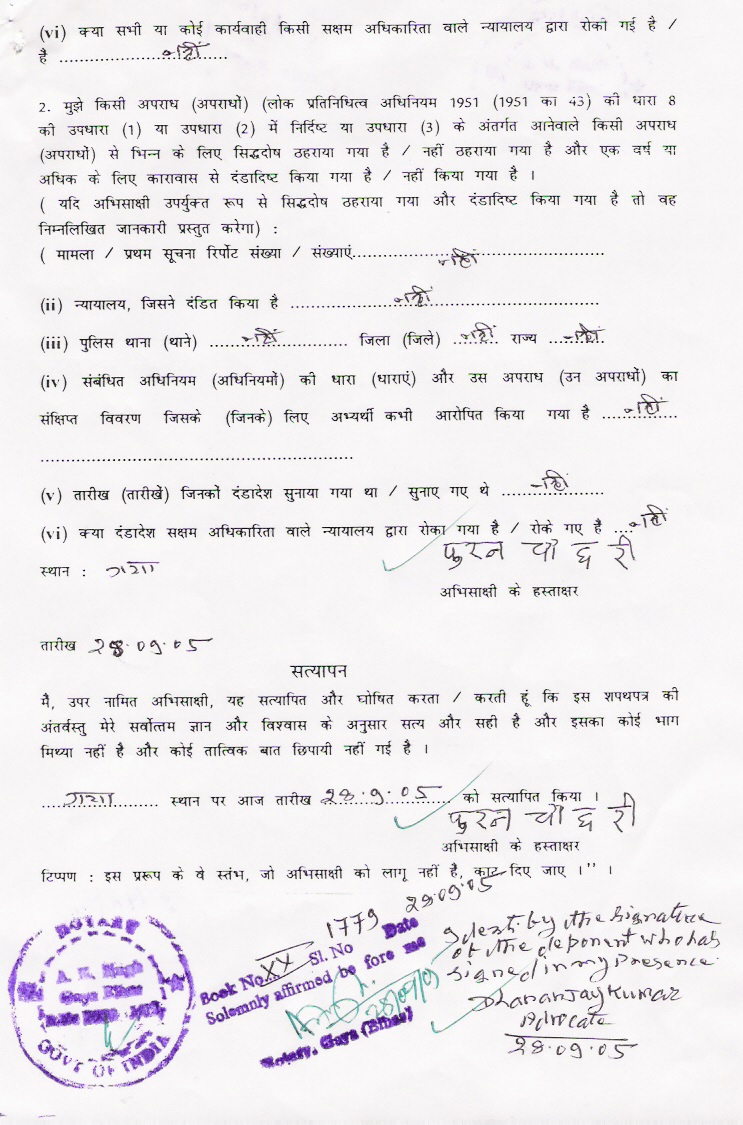 (vi) क्या सभी या कोई कार्यवाही किसी सक्षम अधिकारिता वाले न्यायालय द्वारा रोकी गई है /
है .............नहीं.............
2. मुझे किसी अपराध (अपराधों) (लोक प्रतिनिधित्व अधिनियम 1951 (1951 का 43) की धारा 8
की उपधारा (1) या उपधारा (2) में निर्दिष्ट या उपधारा (3) के अंतर्गत आनेवाले किसी अपराध
(अपराधों) से भिन्न के लिए सिद्धदोष ठहराया गया है / नहीं ठहराया गया है और एक वर्ष या
अधिक के लिए कारावास से दंडादिष्ट किया गया है / नहीं किया गया है ।
( यदि अभिसाक्षी उपर्युक्त रूप से सिद्धदोष ठहराया गया और दंडादिष्ट किया गया है तो वह
निम्नलिखित जानकारी प्रस्तुत करेगा) :
( मामला / प्रथम सूचना रिर्पोट संख्या / संख्याएं.............नहीं.............
(ii) न्यायालय, जिसने दंडित किया है .............नहीं.............
(iii) पुलिस थाना (थाने) ......नहीं............. जिला (जिले) ...नहीं. राज्य ...नहीं.
(iv) संबंधित अधिनियम (अधिनियमों) की धारा (धाराएं) और उस अपराध (उन अपराधों) का
संक्षिप्त विवरण जिसके (जिनके) लिए अभ्यर्थी कभी आरोपित किया गया है ....नहीं....
.......................................................
(v) तारीख (तारीखें) जिनकों दंडादेश सुनाया गया था / सुनाए गए थे ......नहीं......
(vi) क्या दंडादेश सक्षम अधिकारिता वाले न्यायालय द्वारा रोका गया है / रोके गए है ....नहीं
फुरन चौधरी
स्थान : गया
अभिसाक्षी के हस्ताक्षर
तारीख 28.09.05
सत्यापन
मैं, उपर नामित अभिसाक्षी, यह सत्यापित और घोषित करता / करती हूं कि इस शपथपत्र की
अंतर्वस्तु मेरे सर्वोत्तम ज्ञान और विश्वास के अनुसार सत्य और सही है और इसका कोई भाग
मिथ्या नहीं है और कोई तात्विक बात छिपायी नहीं गई है ।
....गया........ स्थान पर आज तारीख 28.9.05 को सत्यापित किया ।
फुरन चौधरी
अभिसाक्षी के हस्ताक्षर
टिप्पण : इस प्ररूप के वे स्तंभ, जो अभिसाक्षी को लागू नहीं है, काट दिए जाए ।" ।
NOTARY
A. K. Singh
Gaya Bihar
GOVT OF INDIA
Book No. XX Sl. No 1779 Date 28.09.05
Solemnly affirmed be fore me
Notary, Gaya (Bihar)
Identi. by the signature
of the deponent who has
signed in my presence.
Dhananjay Kumar
Advocate
28.09.05